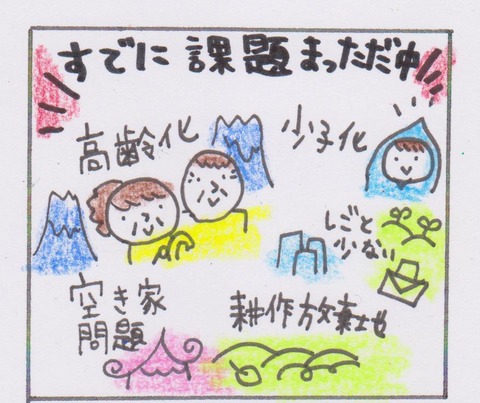 すでに課題まっただ中
高齢化
少子化
しごと
少ない
空き家
問題
耕作放棄地